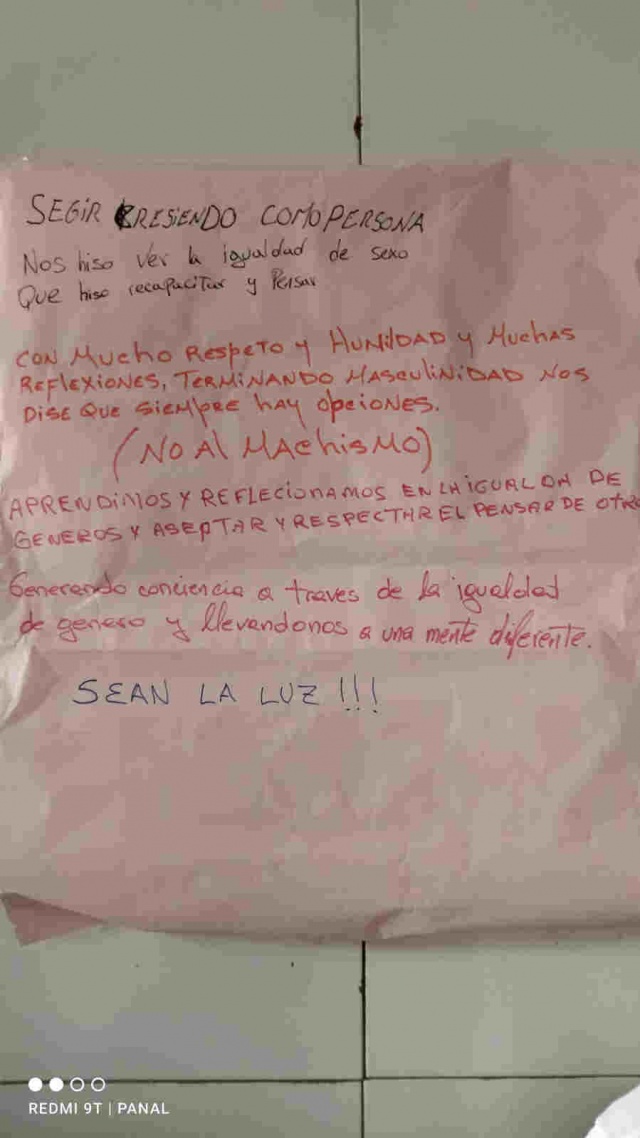 SEGIR CRESIENDO COMO PERSONA
Nos hiso ver la igualdad de sexo
Que hiso recapacitar y Pensar
CON MUCHO RESPETO Y HUNILDAD Y MUCHAS
REFLEXIONES, TERMINANDO MASCULINIDAD NOS
DISE QUE SIEMPRE HAY OPCIONES.
(NO AL MACHISMO)
APRENDIMOS Y REFLECIONAMOS EN LA IGUALDA DE
GENEROS Y ASEPTAR Y RESPECTAR EL PENSAR DE OTRO
Generando conciencia a traves de la igualdad
de genero y llevandonos a una mente diferente.
SEAN LA LUZ !!!
REDMI 9T | PANAL